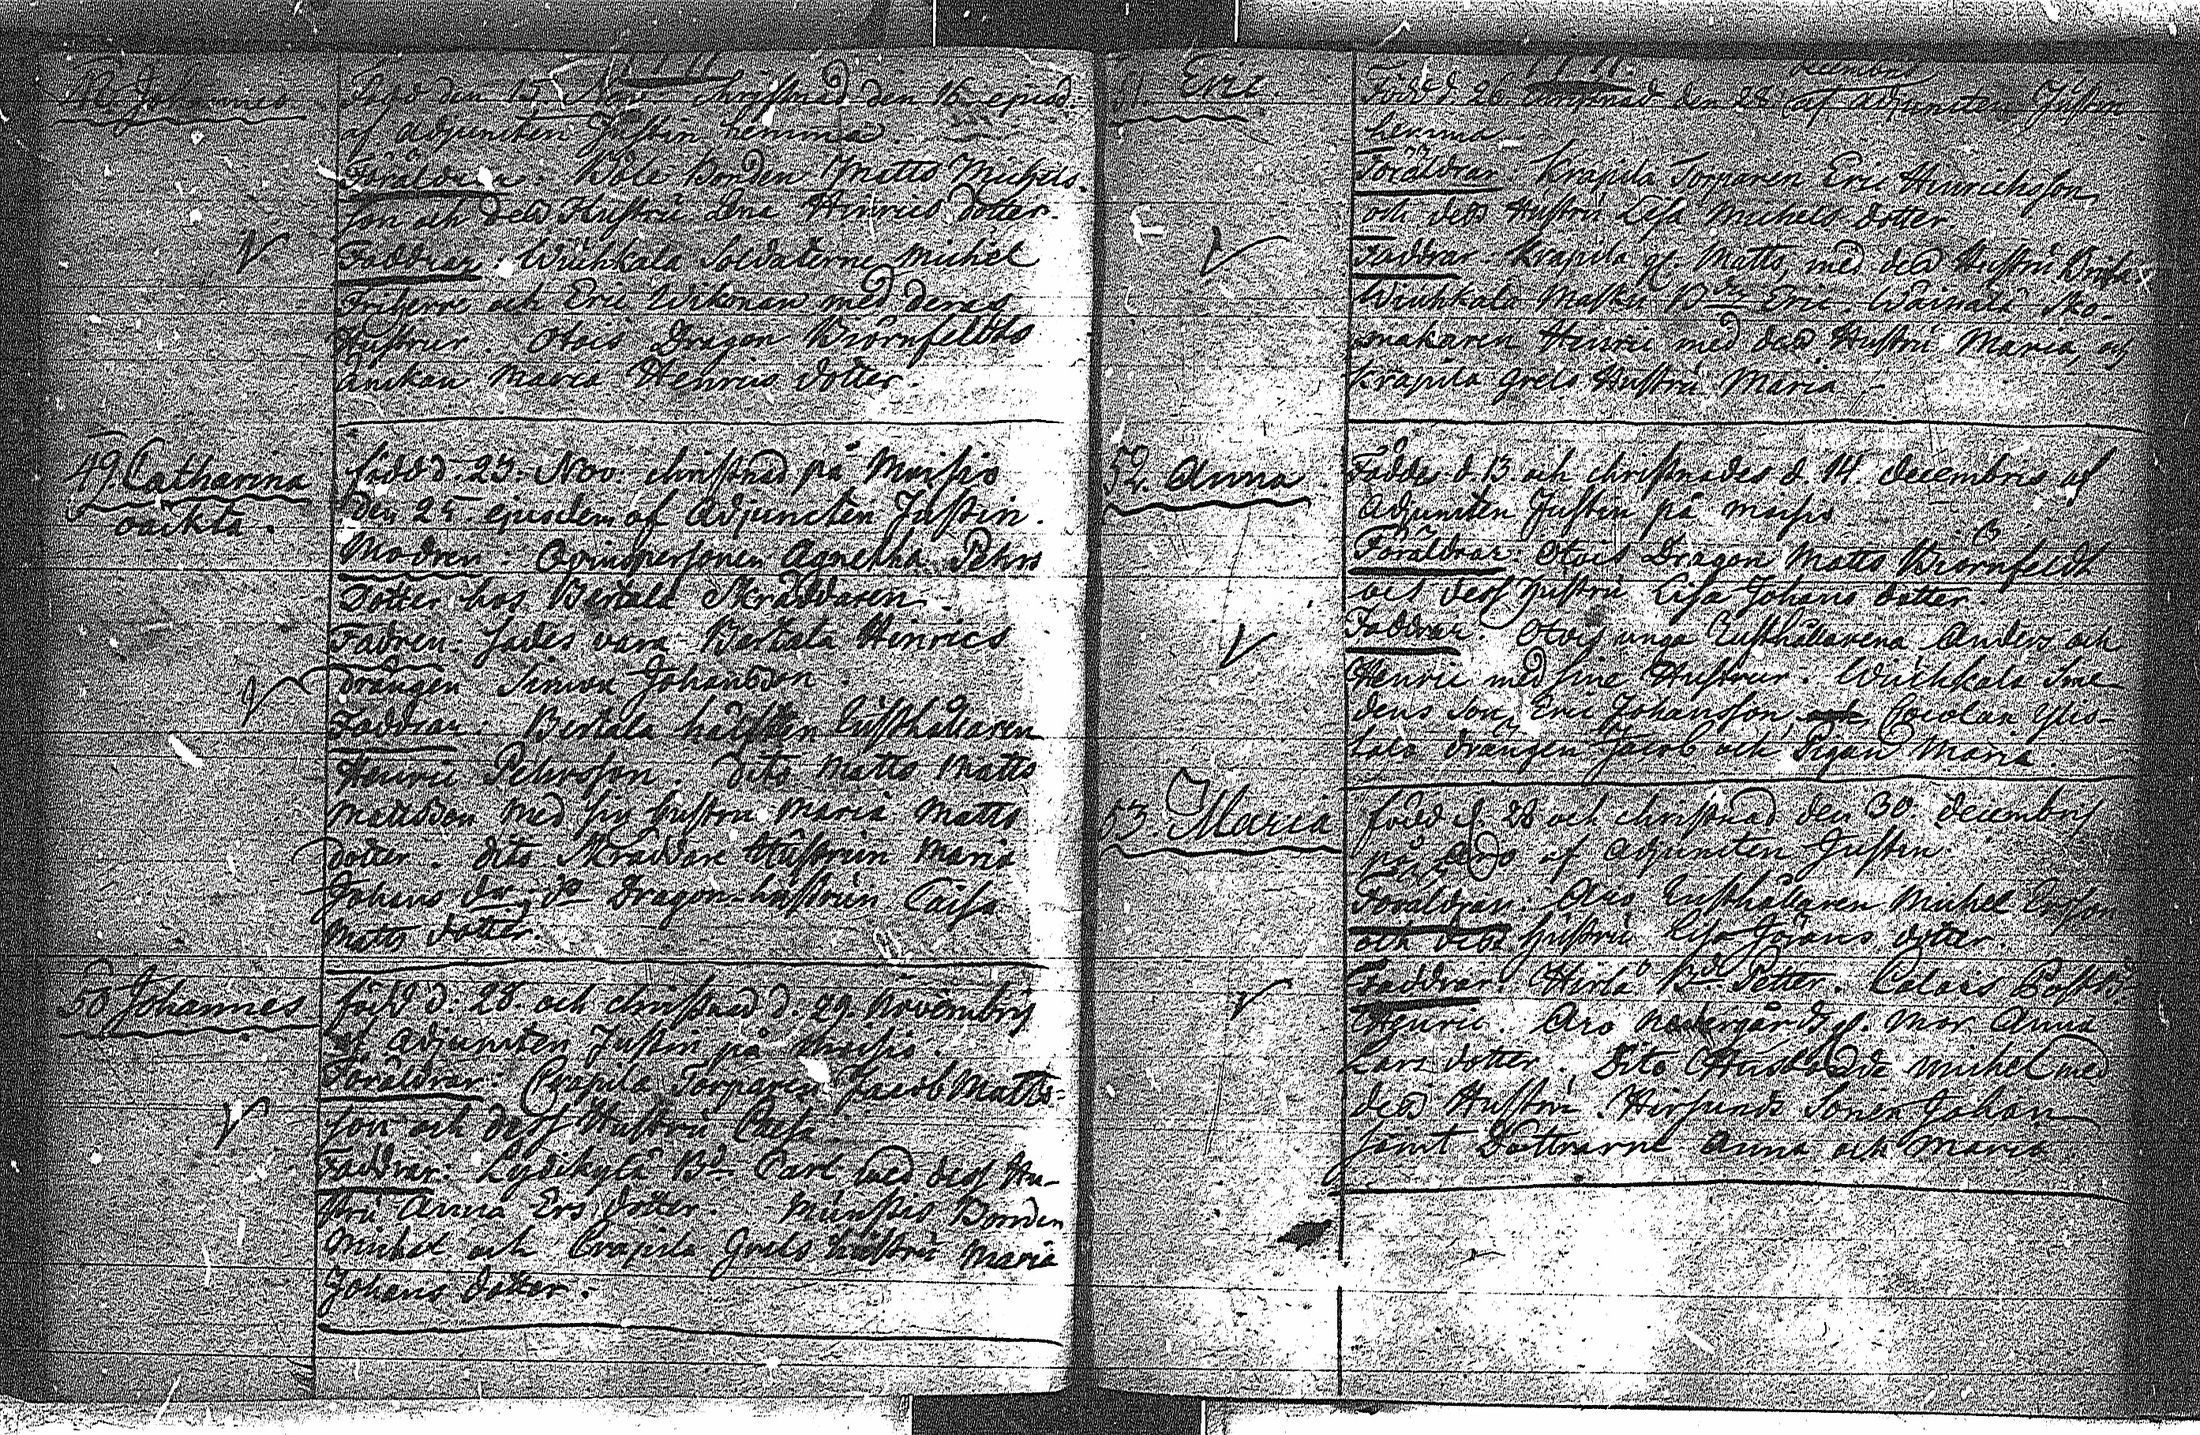 48. Johannes
Född den 15 Nov. christnad den 16 ejusd.
af adjuncten Justin hemma.
Föräldrar. Bonden Matts Michels-
son och dess Hustru Hinrics dotter.
Faddrar. Wuchkala Soldaterne Michel
och Eric med deras
Hustrur. Otois Dragon Björnfeldts
änkan Maria Henrics dotter.
49. Catharina
oäckta.
född d. 23. Nov. christnad på
den 25 ejusdem af Adjuncten Justin.
Modren. Qvinspersonen Agnetha Pehrs
Dotter hos Bertala Skräddaren.
Fadren. sades vara Bertala Hinrics
drängen Simon Johansson.
Faddrar. Bertala hälften Rusthållaren
Henric Pehrsson. Dito Matts Matts
Mattsson med sin hustru Maria Matts
dotter. dito Skräddare Hustrun Maria
Johans dr, do Dragon-hustrun Caisa
Matts dotter.
50 Johannes
född d: 28 och christnad d: 29 Novembris
af Adjuncten Justin på
Föräldrar: Krapila Torparen Jacob Matts-
son och dess Hustru Caisa
Faddrar: Lydikylä Bd. Carl med dess Hu-
stru Anna Ers dotter. Bonden
Michel och Crapila Grels hustru Maria
Johans dotter.
51. Eric.
Född d. 26. christnad den 28 af adjuncten Justin
hemma
Föräldrar Krapila Torparen Eric Hinrichsson
och dess Hustru Lisa Michels dotter.
Faddrar. Krapila gl. Matts, med dess Hustru
Wuchkala Eric. Sko-
makaren Henric med dess Hustru Maria, och
Krapila Grels Hustru Maria.
52. Anna
Föddes d. 13 och christnades d. 14 decembris af
Adjuncten Justin på
Föräldrar. Otois Dragon Matts Björnfeldt
och dess hustru Lisa Johans dotter.
Faddrar. Otois unga Rusthållarena Anders och
Henric med sine Hustrur. Wuchkala Sme-
dens son Eric Johansson,
drängen Jacob och Pigan Maria
53. Maria
född d. 28 och christnad den 30 decembris
på Aro af Adjuncten Justin.
Föräldrar. Aro Rusthållaren Michel Ersson
och dess hustru Lisa Jörans dotter.
Faddrar. Bd. Petter.
Henric. Aro gl. Mor Anna
Lars dotter. Dito Michel med
dess Hustru. Sonen Johan
samt Döttrarne Anna och Maria